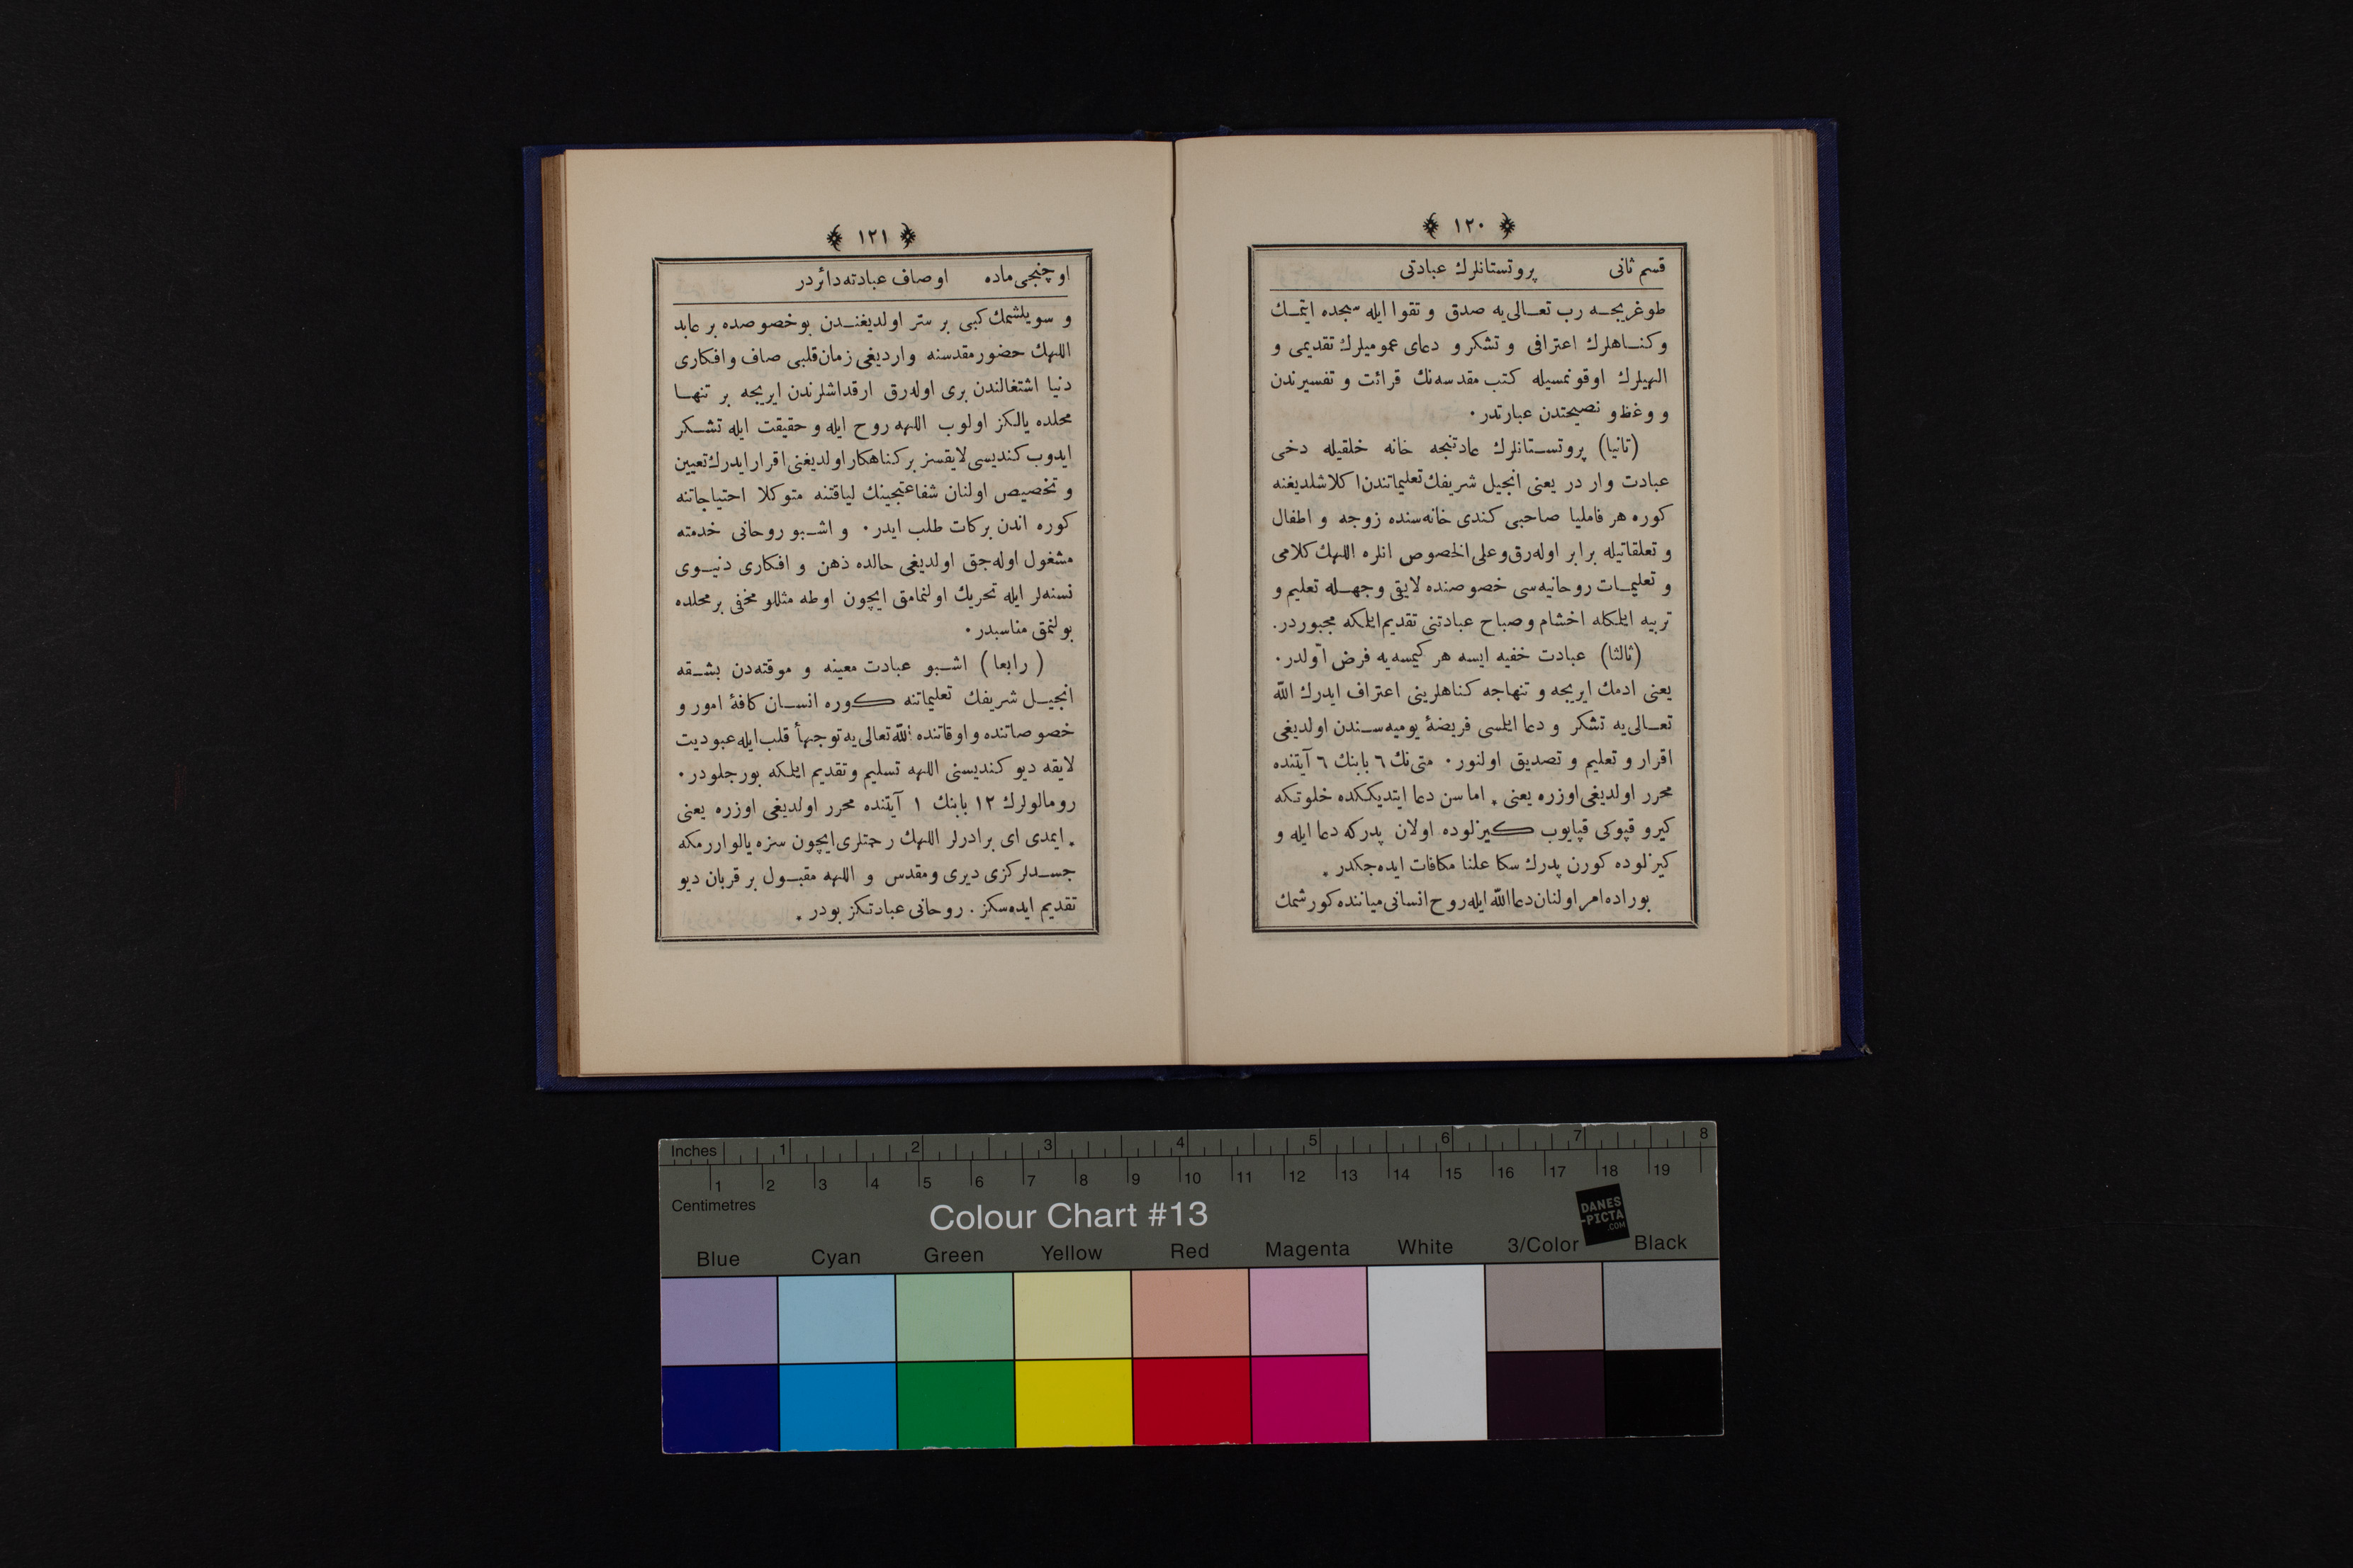 ١٢٠
قسم ثانی پروتستانلرك عبادتی
طوغریجه رب تعالی‌یه صدق و تقوا ایله سجده ایتمك
وكناهلرك اعترافی و تشكر و دعای عمومیلرك تقدیمی و
الهیلرك اوقونمسیله كتب مقدسه‌نك قرائت و تفسیرندن
و وغظ و نصیحتدن عبارتدر ۰
(ثانیا) پروتستانلرك عادتنجه خانه خلقیله دخی
عبادت وار در یعنی انجیل شریفك تعلیماتندن اكلاشلدیغنه
كوره هر فاملیا صاحبی كندی خانه‌سنده زوجه و اطفال
و تعلقاتیله برابر اوله‌رق وعلی الخصوص انلره اللهك كلامی
و تعلیمات روحانیه‌سی خصوصنده لایقی وجهله تعلیم و
تربیه ایلمكله اخشام و صباح عبادتنی تقدیم ایلمكه مجبوردر.
(ثالثا) عبادت خفیه ایسه هر كیمسه‌یه فرض اوّلدر ۰
یعنی ادمك ایریجه و تنهاجه كناهلرینی اعتراف ایدرك الله
تعالی‌یه تشكر و دعا ایلمسی فریضهٔ یومیه‌سندن اولدیغی
اقرار و تعلیم و تصدیق اولنور ۰ متی‌نك ٦ بابنك ٦ آیتنده
محرر اولدیغی اوزره یعنی ٭ اما سن دعا ایتدیككده خلوتكه
كیرو قپوكی قپایوب كیزلوده اولان پدركه دعا ایله و
كیزلوده كورن پدرك سكا علنا مكافات ایده‌جكدر ٭
بوراده امر اولنان دعا الله ایله روح انسانی میاننده كورشمك
١٢١
اوچنجی ماده اوصاف عبادته دائردر
و سویلشمك كبی بر ستر اولدیغندن بو خصوصده بر عابد
اللهك حضور مقدسنه واردیغی زمان قلبی صاف وافكاری
دنیا اشتغالندن بری اوله‌رق ارقداشلرندن ایریجه بر تنها
محلده یالكز اولوب اللهه روح ایله و حقیقت ایله تشكر
ایدوب كندیسی لایقسز بر كناهكار اولدیغنی اقرار ایدرك تعیین
و تخصیص اولنان شفاعتجینك لیاقتنه متوكلا احتیاجاتنه
كوره اندن بركات طلب ایدر ۰ و اشبو روحانی خدمته
مشغول اوله‌جق اولدیغی حالده ذهن و افكاری دنیوی
نسنه‌لر ایله تحریك اولنمامق ایچون اوطه مثللو مخفی بر محلده
بولنمق مناسبدر ۰
(رابعا) اشبو عبادت معینه و موقته‌دن بشقه
انجیل شریفك تعلیماتنه كوره انسان كافهٔ امور و
خصوصاتنده و اوقاتنده الله تعالی‌یه توجهاً قلب ایله عبودیت
لایقه دیو كندیسنی اللهه تسلیم و تقدیم ایلمكه بورجلودر ۰
رومالولرك ١٢ بابنك ١ آیتنده محرر اولدیغی اوزره یعنی
٭ ایمدی ای برادرلر اللهك رحمتلری ایچون سزه یالواررمكه
جسدلركزی دیری ومقدس و اللهه مقبول بر قربان دیو
تقدیم ایده‌سكز . روحانی عبادتكز بودر ٭
Inches 1 2 3 4 5 6 7 8
1 2 3 4 5 6 7 8 9 10 11 12 13 14 15 16 17 18 19
Centimetres
Colour Chart #13
DANES
-PICTA
.COM
Blue Cyan Green Yellow Red Magenta White 3/Color Black